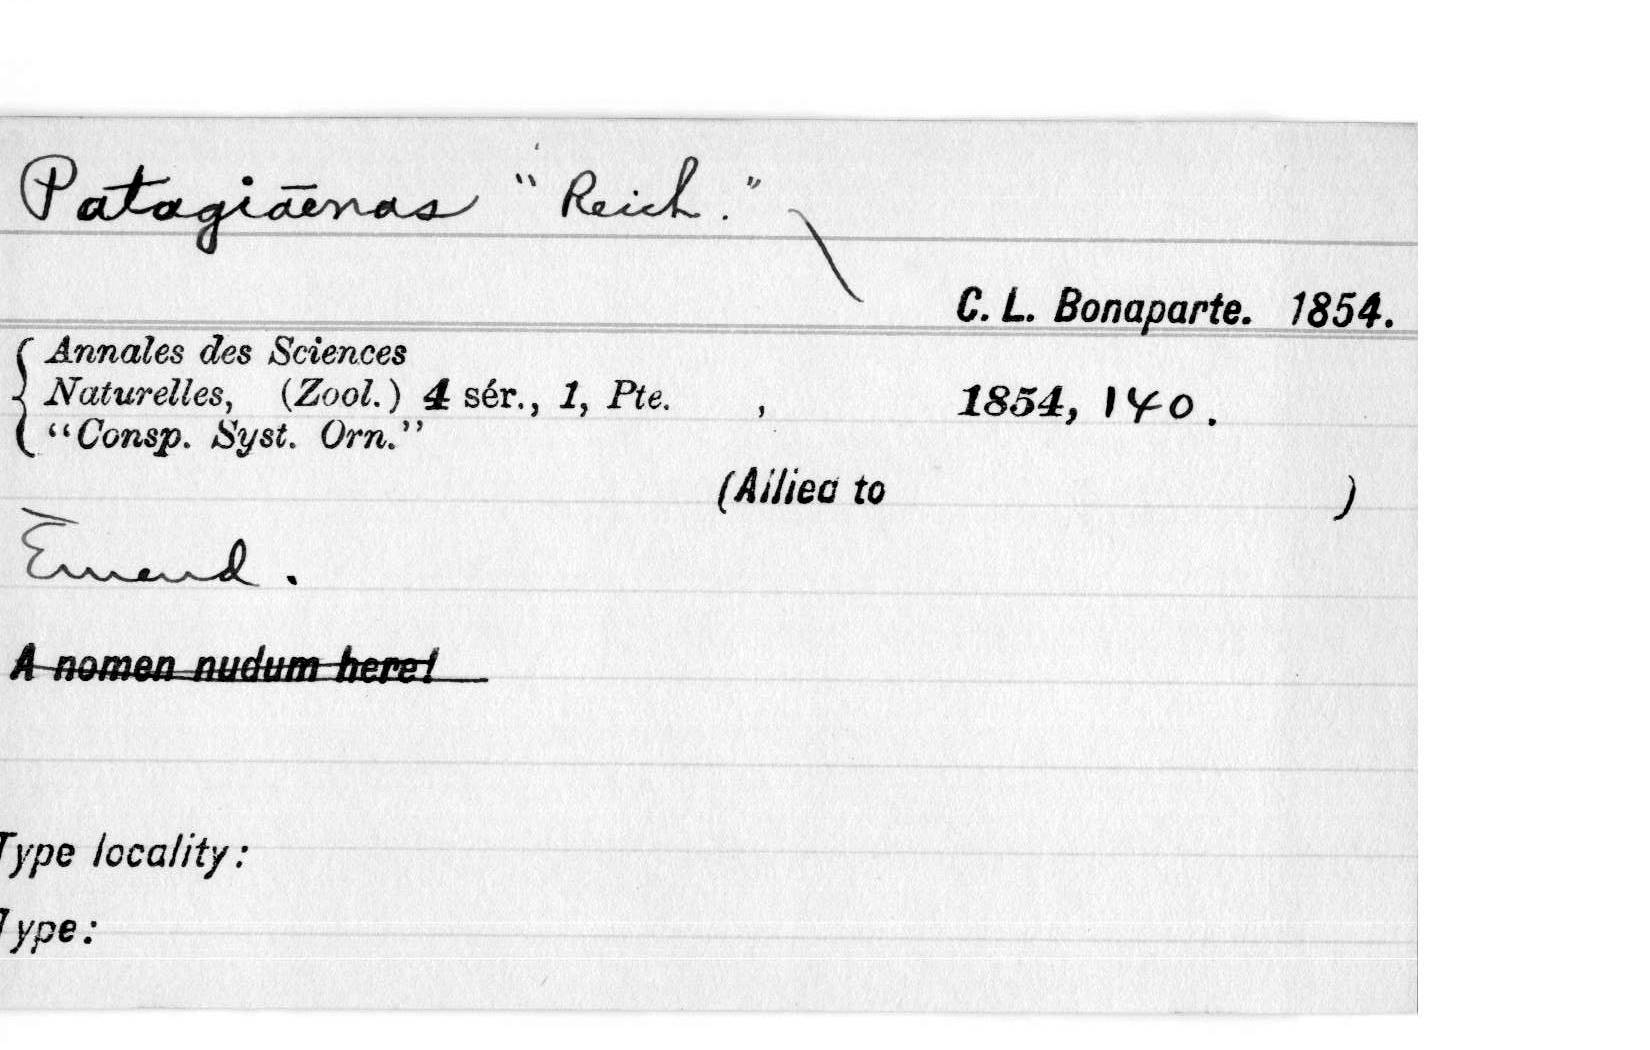 Patagiāenas "Reich."
C. L. Bonaparte. 1854.
Annales des Sciences
Naturelles, (Zool.) 4 sér., 1, Pte. , 1854, 140.
"Consp. Syst. Orn."
(Allied to )
Emend.
A nomen nudum here!
Type locality:
Type: